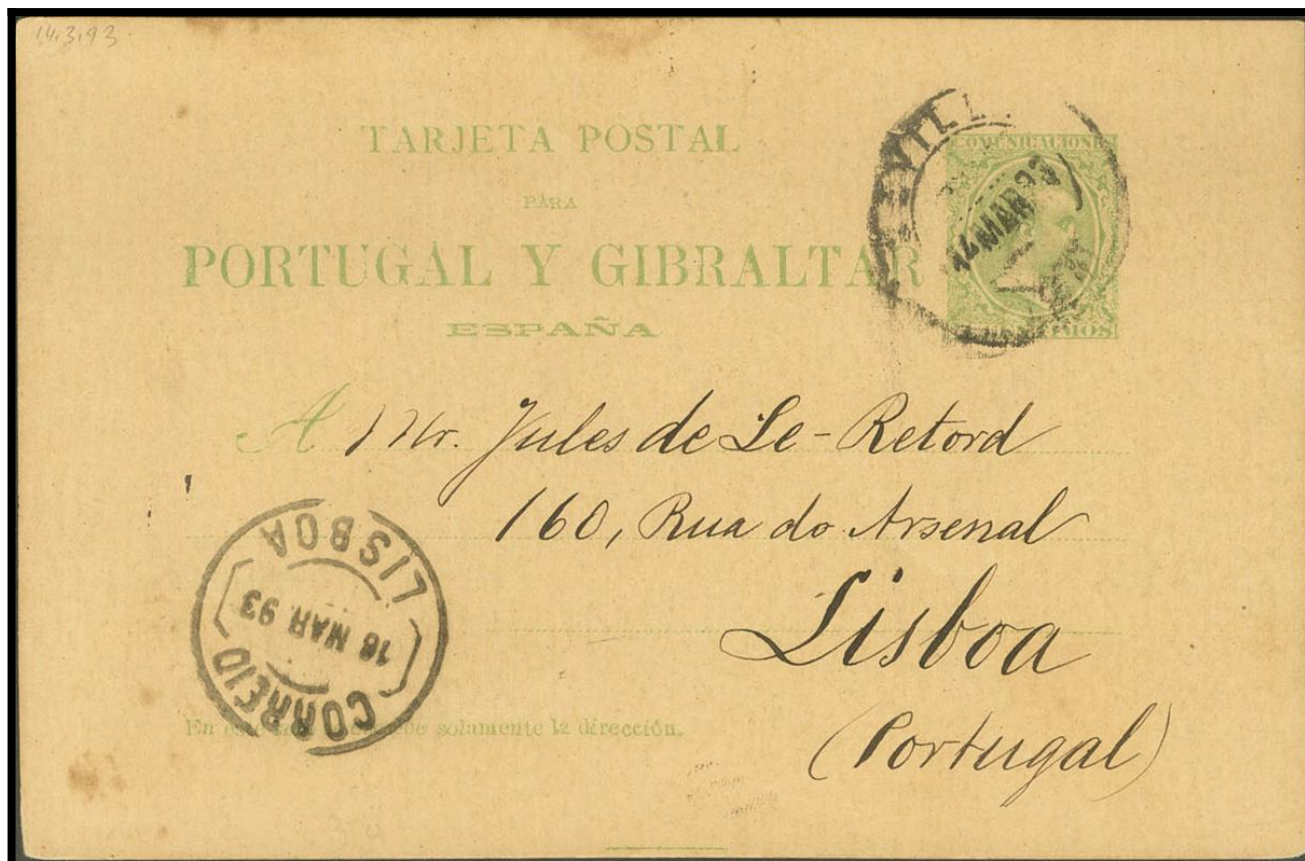 14.3.93
TARJETA POSTAL
PARA
PORTUGAL Y GIBRALTAR
ESPAÑA
COMUNICACIONES
14 MAR
A Mr. Jules de Le-Retord
160, Rua do Arsenal
Lisboa
(Portugal)
CORREIO
16 MAR 93
LISBOA
En solamente la dirección.